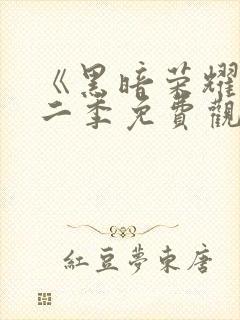 《黑暗荣耀
二季免費觀
紅豆夢東唐